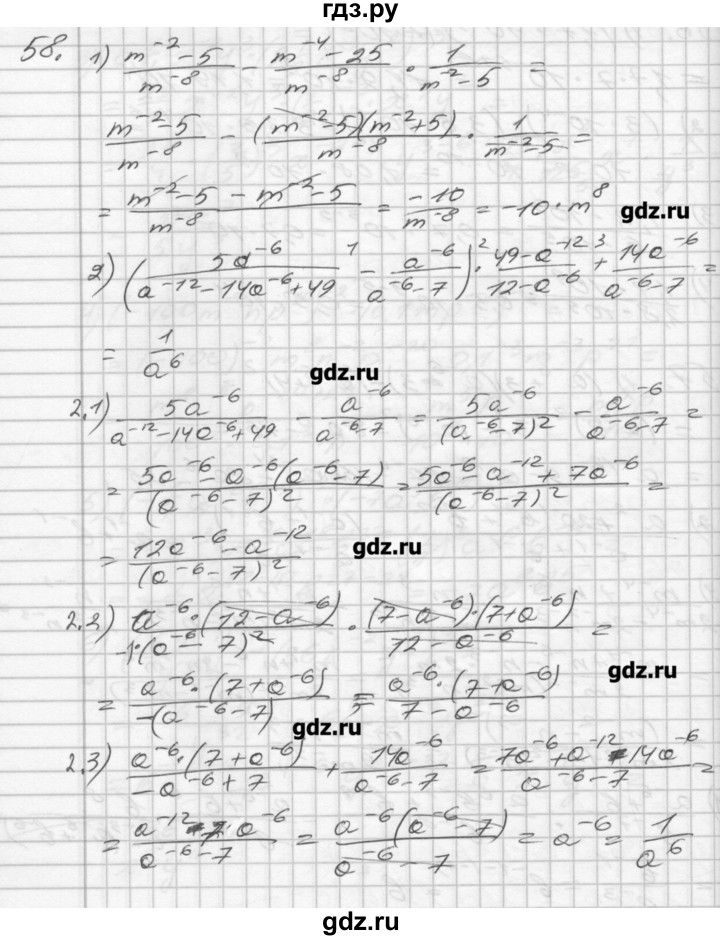 гдз.ру
58. 1) (m^-2 - 5)/(m^-8) - (m^-4 - 25)/(m^-8) · 1/(m^-2 - 5) =
(m^-2 - 5)/(m^-8) - ((m^-2 - 5)(m^-2 + 5))/(m^-8) · 1/(m^-2 - 5) =
= (m^-2 - 5 - m^-2 - 5)/(m^-8) = -10/(m^-8) = -10 · m^8
gdz.ru
2) (5a^-6/(a^-12 - 14a^-6 + 49) -^1 a^-6/(a^-6 - 7)) ·^2 (49 - a^-12)/(12 - a^-6) +^3 14a^-6/(a^-6 - 7) =
= 1/a^6
gdz.ru
2.1) 5a^-6/(a^-12 - 14a^-6 + 49) - a^-6/(a^-6 - 7) = 5a^-6/(a^-6 - 7)^2 - a^-6/(a^-6 - 7) =
= (5a^-6 - a^-6(a^-6 - 7))/(a^-6 - 7)^2 = (5a^-6 - a^-12 + 7a^-6)/(a^-6 - 7)^2 =
= (12a^-6 - a^-12)/(a^-6 - 7)^2
gdz.ru
2.2) (a^-6 · (12 - a^-6))/(-1·(a^-6 - 7)^2) · ((7 - a^-6) · (7 + a^-6))/(12 - a^-6) =
= (a^-6 · (7 + a^-6))/(-(a^-6 - 7)) = (a^-6 · (7 + a^-6))/(7 - a^-6)
gdz.ru
gdz.ru
2.3) (a^-6 · (7 + a^-6))/(-a^-6 + 7) + 14a^-6/(a^-6 - 7) = (7a^-6 + a^-12 - 14a^-6)/(a^-6 - 7) =
= (a^-12 - 7 a^-6)/(a^-6 - 7) = (a^-6(a^-6 - 7))/(a^-6 - 7) = a^-6 = 1/a^6
gdz.ru